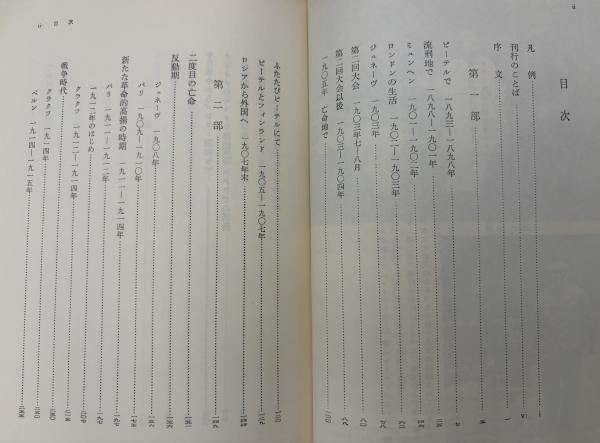 目次
凡例
刊行のことば
序文
第一部
ピーテルで 一八九三―一八九八年
流刑地で 一八九八―一九〇一年
ミュンヘン 一九〇一―一九〇二年
ロンドンの生活 一九〇二―一九〇三年
ジュネーヴ 一九〇三年
第二回大会 一九〇三年七―八月
第二回大会以後 一九〇三―一九〇四年
一九〇五年 亡命地で
ふたたびピーテルにて
ピーテルとフィンランド 一九〇五―一九〇七年
ロシアから外国へ 一九〇七年末
第二部
二度目の亡命
反動期
ジュネーヴ 一九〇八年
パリ 一九〇九―一九一〇年
新たな革命的高揚の時期 一九一一―一九一四年
パリ 一九一一―一九一二年
一九一二年のはじめ
クラクフ 一九一二―一九一四年
戦争時代
クラクフ 一九一四年
ベルン 一九一四―一九一五年
目次